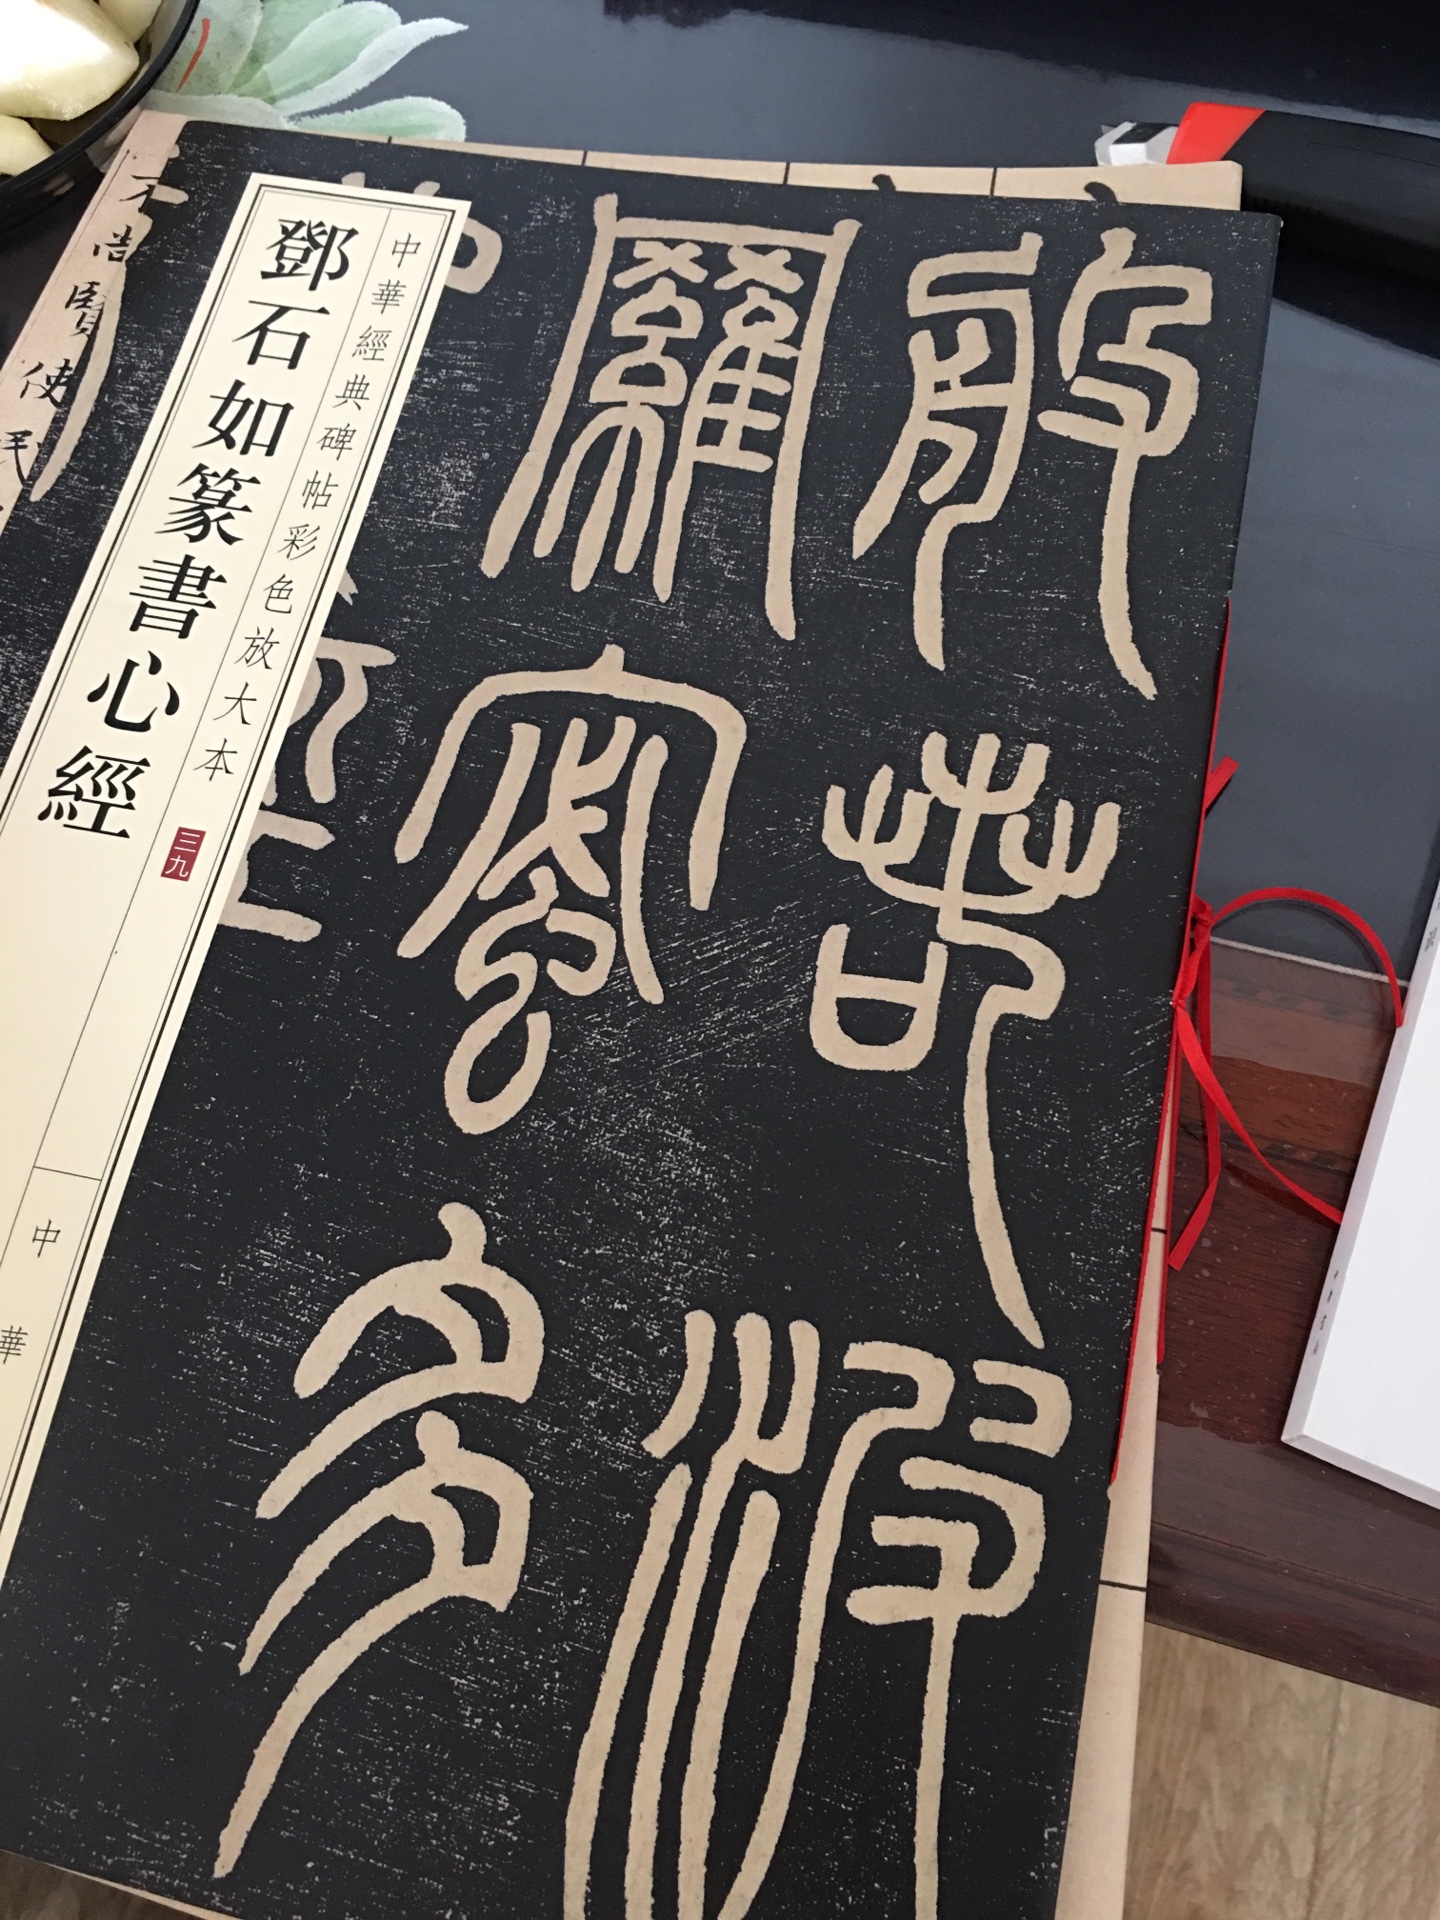 般若波
羅蜜多
心經
中華經典碑帖彩色放大本
三九
鄧石如篆書心經
中華
不尚賢使民